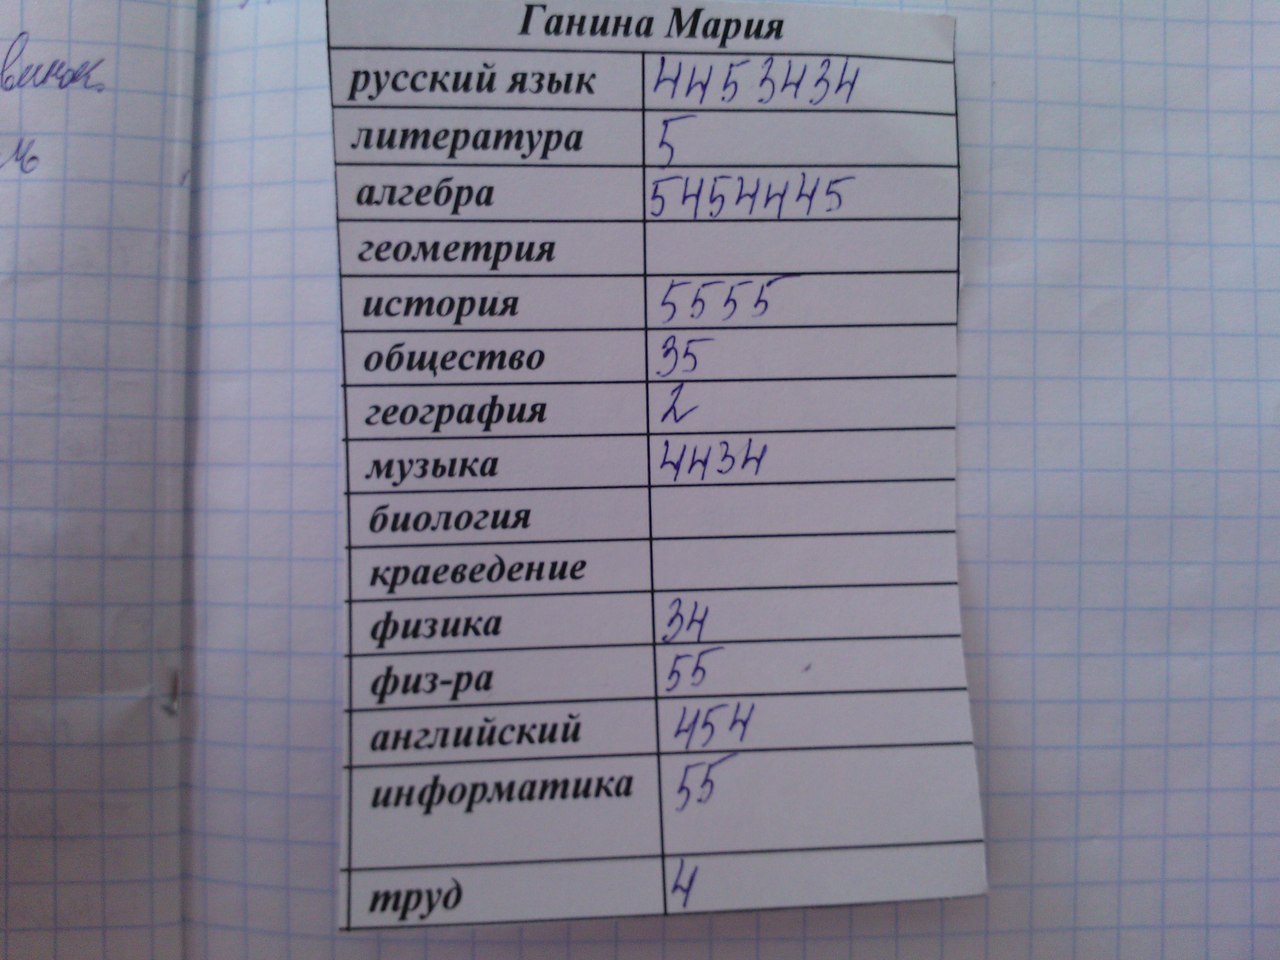 Ганина Мария
русский язык 4453434
литература 5
алгебра 5454445
геометрия
история 5555
общество 35
география 2
музыка 4434
биология
краеведение
физика 34
физ-ра 55
английский 454
информатика 55
труд 4